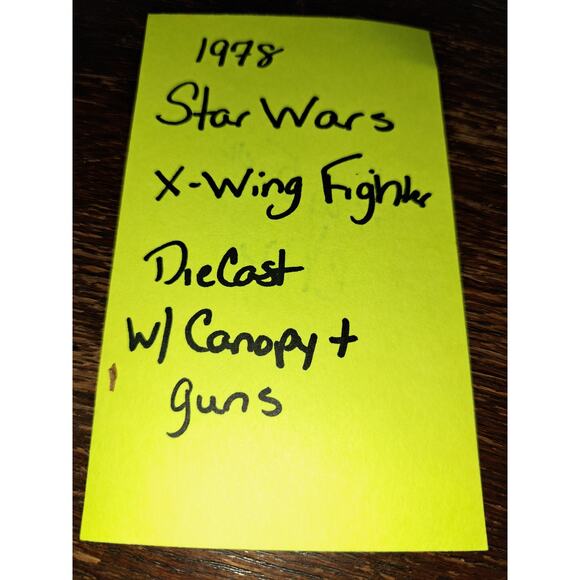 1978
Star Wars
X-Wing Fighter
DieCast
W/ Canopy +
guns